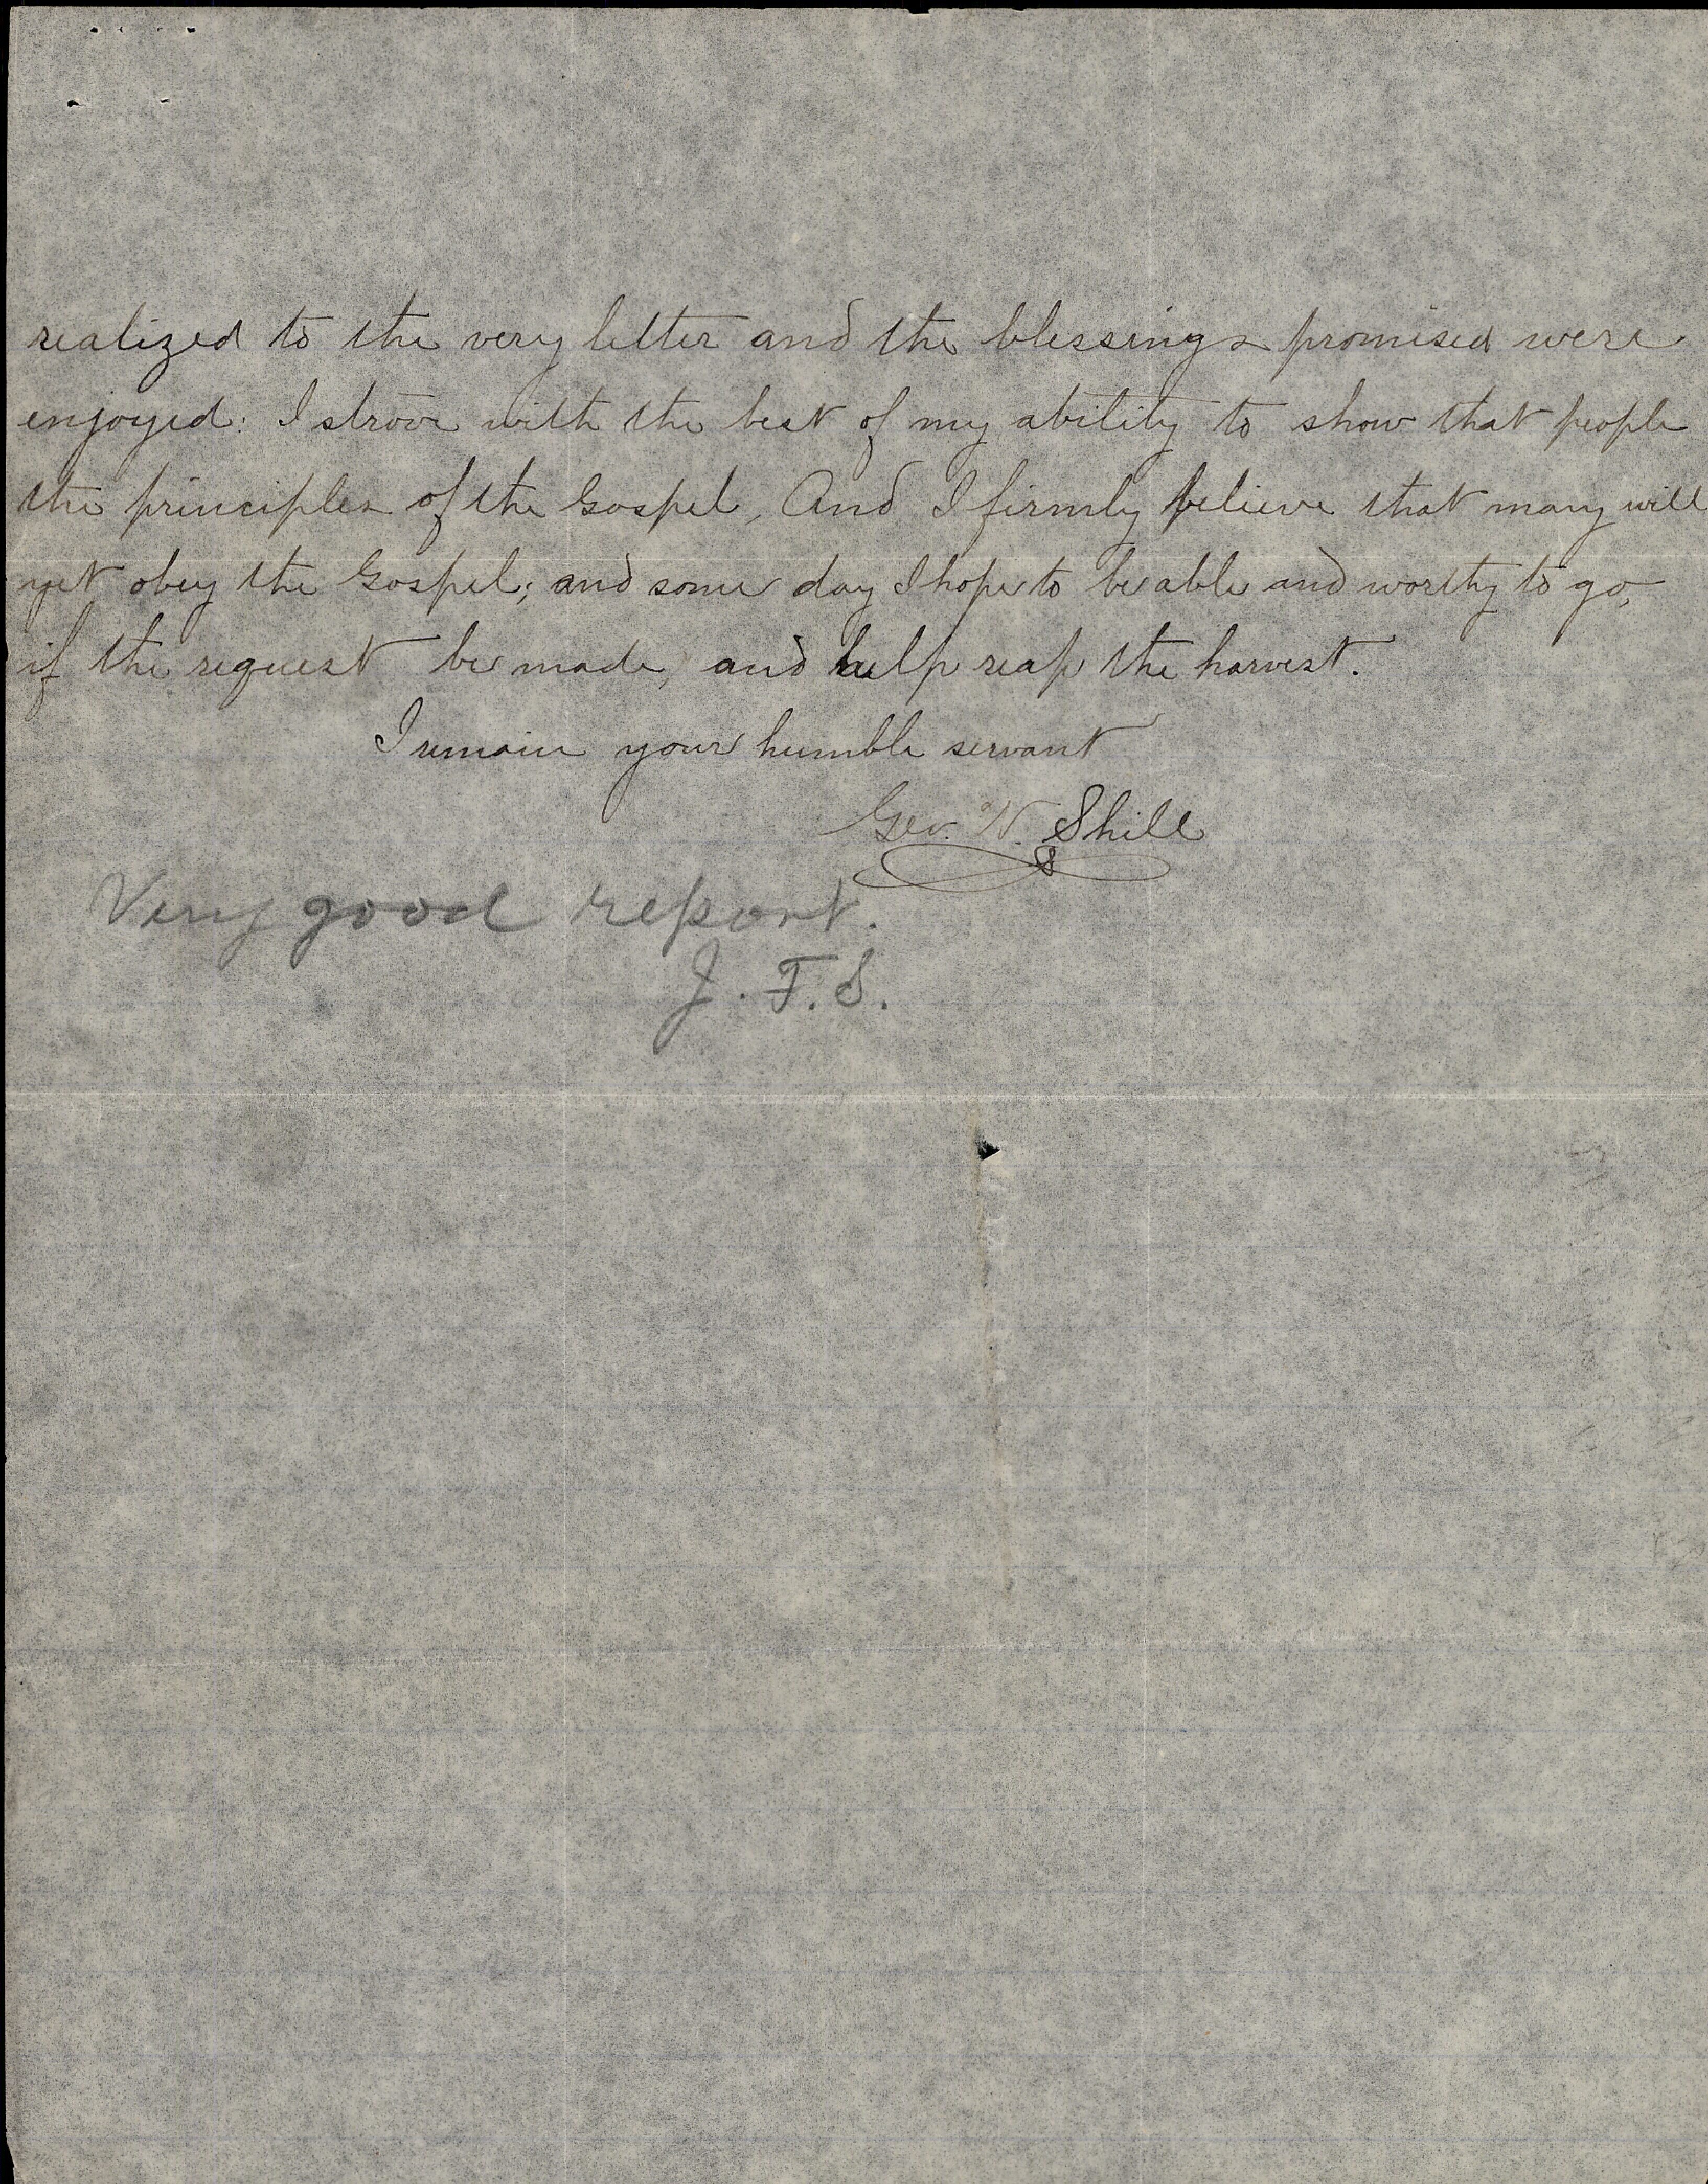 realized to the very letter and the blessings promised were
enjoyed: I strove with the best of my ability to show that people
the principles of the Gospel, And I firmly believe that many will
yet obey the Gospel; and some day I hope to be able and worthy to go,
if the request be made, and help reap the harvest.
I remain your humble servant
Geo. W. Shill
Very good report.
J. F. S.